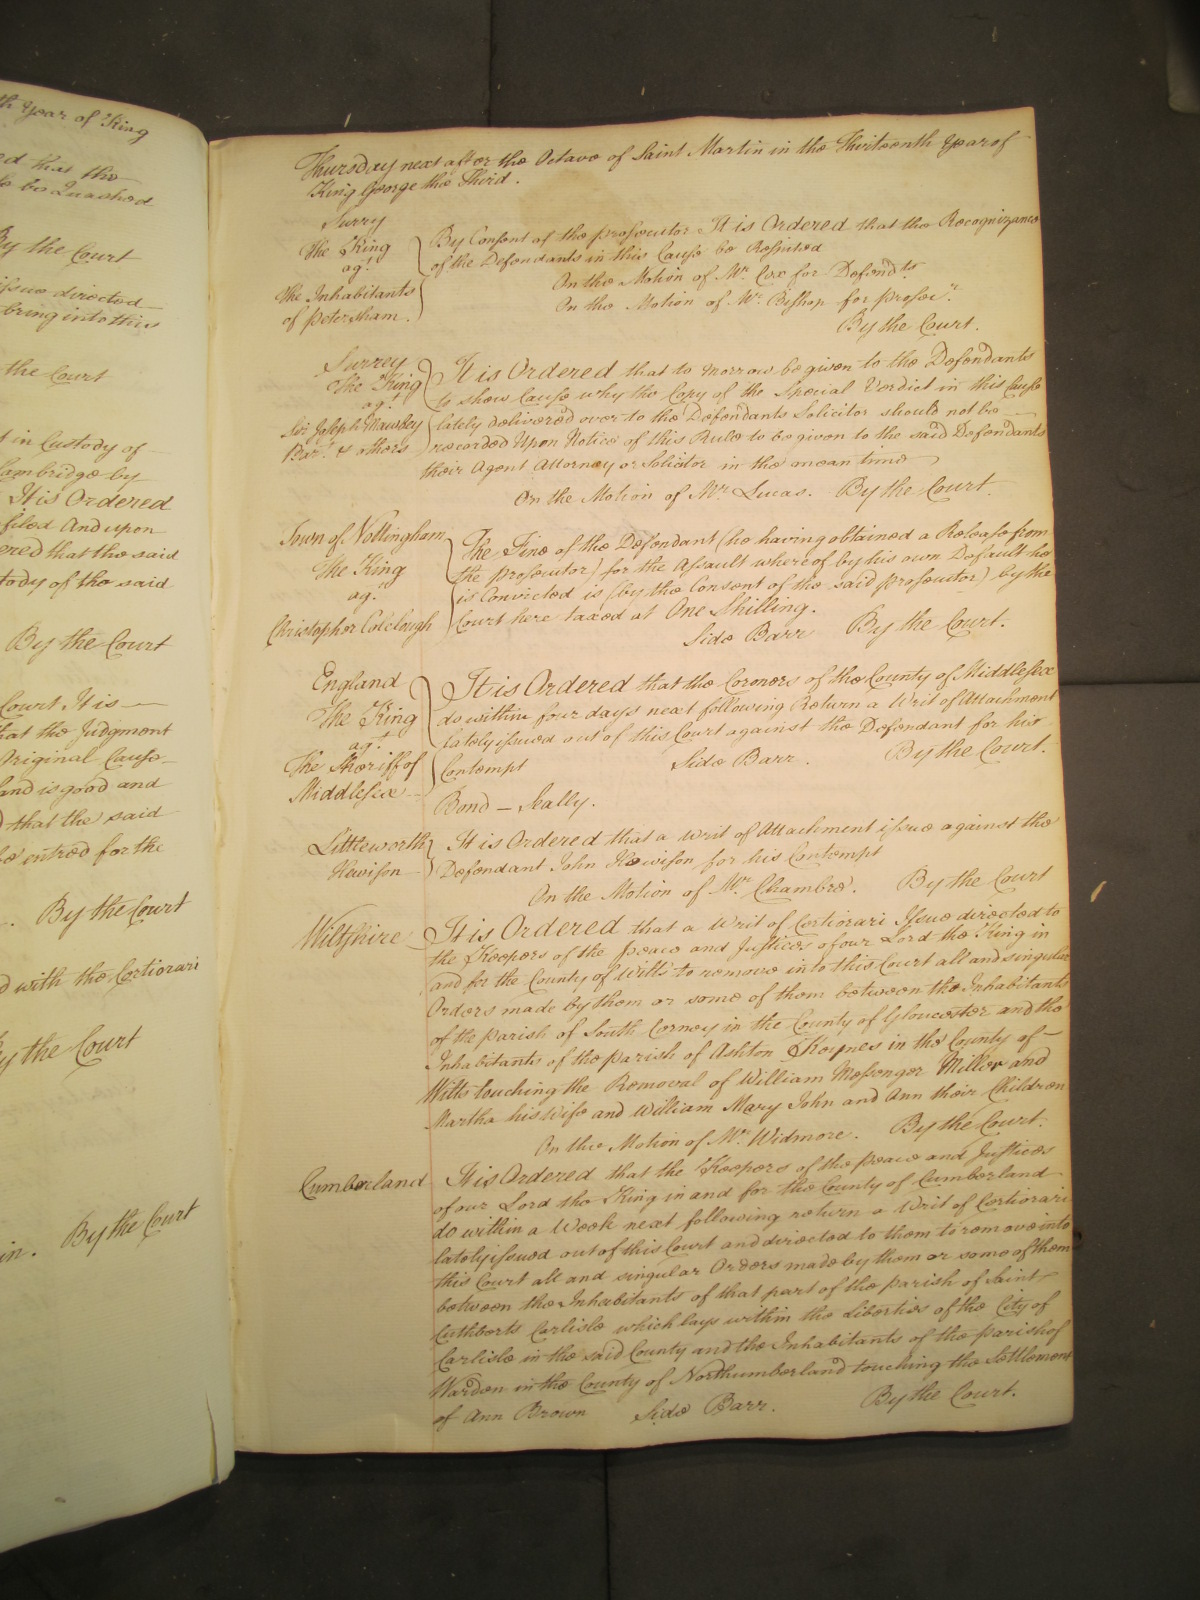 th Year of King
ed that the
to be Quashed
By the Court
issue directed
bring into this
the Court
t in Custody of
Cambridge by
It is Ordered
filed And upon
ered that the said
tody of the said
By the Court
Court It is
that the Judgment
Original Cause
and is good and
d that the said
be entred for the
By the Court
d with the Certiorari
By the Court
in. By the Court
Thursday next after the Octave of Saint Martin in the Thirteenth Year of
King George the Third.
Surry
The King
agt.
The Inhabitants
of Petersham.
By Consent of the prosecutor It is Ordered that the Recognizance
of the Defendants in this Cause be Respited
On the Motion of Mr. Cox for Defendts.
On the Motion of Mr. Bishop for prosecr.
By the Court.
Surrey
The King
agt.
Sir Joseph Mawbey
Bart. & others
It is Ordered that to morrow be given to the Defendants
to shew Cause why the Copy of the Special Verdict in this Cause
lately delivered over to the Defendants Solicitor should not be
recorded Upon Notice of this Rule to be given to the said Defendants
their Agent Attorney or Solicitor in the mean time
On the Motion of Mr. Lucas. By the Court.
Town of Nottingham
The King
agt.
Christopher Colclough
The Fine of the Defendant (he having obtained a Release from
the prosecutor) for the Assault whereof by his own Default he
is Convicted is (by the Consent of the said prosecutor) by the
Court here taxed at One Shilling.
Side Barr By the Court.
England
The King
agt.
The Sheriff of
Middlesex
It is Ordered that the Coroners of the County of Middlesex
do within four days next following Return a Writ of Attachment
lately issued out of this Court against the Defendant for his
Contempt Side Barr. By the Court.
Bond — Scally.
Littleworth
Hewison
It is Ordered that a Writ of Attachment issue against the
Defendant John Hewison for his Contempt
On the Motion of Mr. Chambre. By the Court
Wiltshire
It is Ordered that a Writ of Certiorari Issue directed to
the Keepers of the peace and Justices of our Lord the King in
and for the County of Wilts to remove into this Court all and singular
Orders made by them or some of them between the Inhabitants
of the parish of South Cerney in the County of Gloucester and the
Inhabitants of the parish of Ashton Keynes in the County of
Wilts touching the Removal of William Messenger Miller and
Martha his Wife and William Mary John and Ann their Children
On the Motion of Mr. Widmore. By the Court.
Cumberland
It is Ordered that the Keepers of the peace and Justices
of our Lord the King in and for the County of Cumberland
do within a Week next following return a Writ of Certiorari
lately issued out of this Court and directed to them to remove into
this Court all and singular Orders made by them or some of them
between the Inhabitants of that part of the parish of Saint
Cuthberts Carlisle which lays within the Liberties of the City of
Carlisle in the said County and the Inhabitants of the parish of
Warden in the County of Northumberland touching the Settlement
of Ann Brown Side Barr. By the Court.